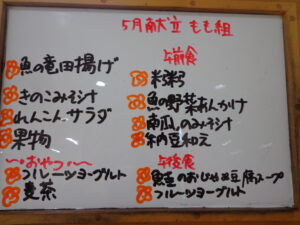 5月献立 もも組
魚の竜田揚げ
きのこみそ汁
れんこんサラダ
果物
〜おやつ〜
フルーツヨーグルト
麦茶
午前食
米粥
魚の野菜あんかけ
南瓜のみそ汁
納豆和え
午後食
鮭のおじや
豆腐スープ
フルーツヨーグルト